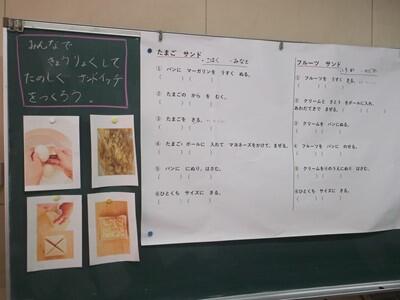 みんなで
きょうりょくして
たのしく サンドイッチ
をつくろう。
たまご サンド
・こはく ・みなと
① パンに マーガリンを うすく ぬる。
( ) ( )
② たまごの から を むく。
( ) ( )
③ たまごを きる。
( ) ( )
④ たまご・ボールに 入れて マヨネーズをかけて、まぜる。
( ) ( )
⑤ パンに にぬり、はさむ。
( ) ( )
⑥ひとくち サイズに きる。
( ) ( )
フルーツ サンド
① フルーツを うすく きる。
( ) ( )
② クリームと さとう をボールに 入れ、
あわだてきで まぜる。( ) ( )
③ クリームを パンにぬる。
( ) ( )
④ フルーツを パンに のせる。
( ) ( )
⑤ クリームをそのうえにぬり はさむ。
( ) ( )
⑥ひとくち サイズに きる。
( ) ( )